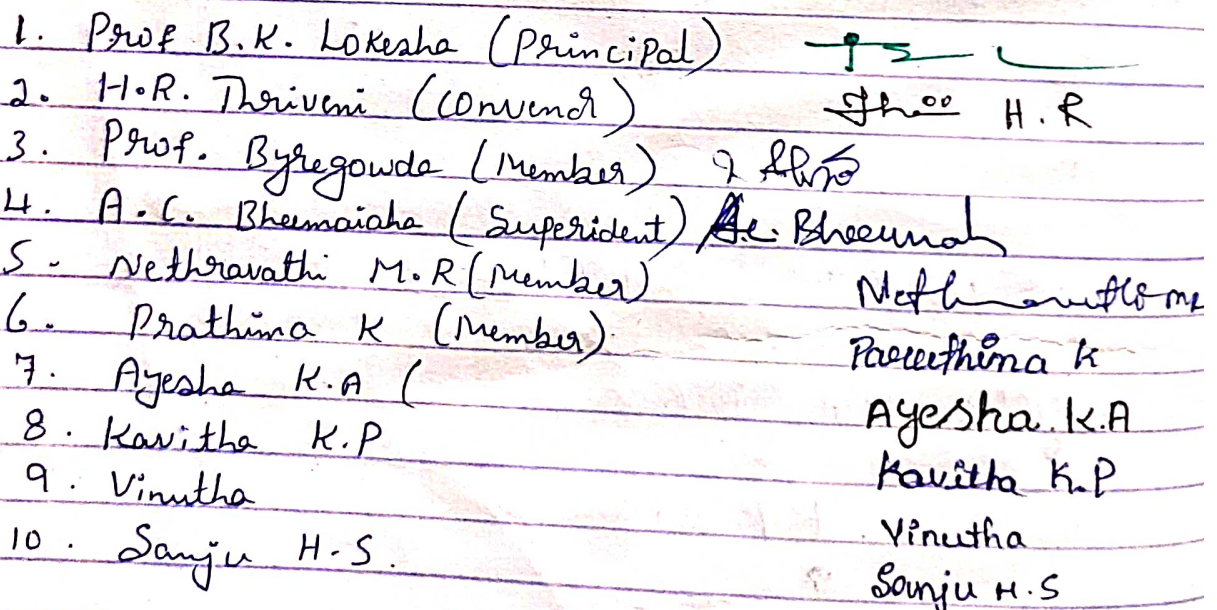 1. Prof B.K. Lokesha (Principal)
2. H.R. Thriveni (Convenor) H.R
3. Prof. Byregowda (Member)
4. A.C. Bheemaiaha (Superident) A.C. Bheemaiah
5. Nethravathi M.R (Member) Nethravathi MR
6. Prathima K (Member) Prathima K
7. Ayesha K.A ( Ayesha.K.A
8. Kavitha K.P Kavitha K.P
9. Vinutha Vinutha
10. Sanju H.S. Sanju H.S